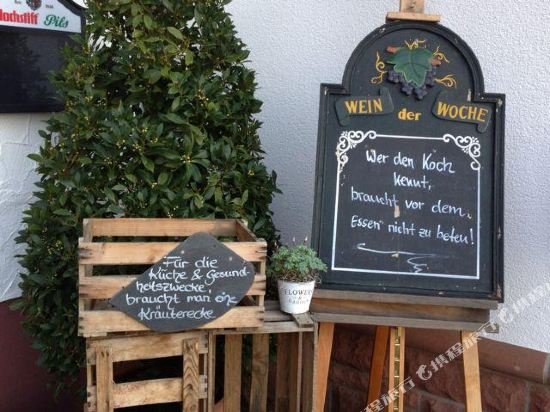 Hachstift Pils
WEIN der WOCHE
Wer den Koch
kennt,
braucht vor dem
Essen nicht zu beten!
Für die
Küche & Gesund-
heitszwecke,
braucht man 'ne
Kräuterecke
FLOWERS
&
GARDEN
携程旅行